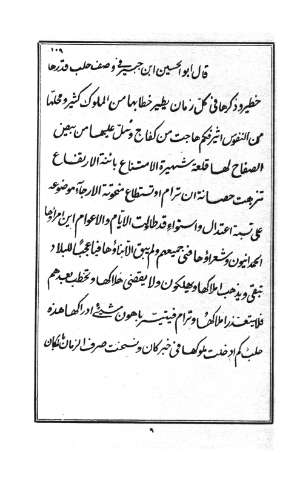 ١٠٩
قال ابوالحسين ابن جبير فى وصف حلب قدرها
خطير و ذكرها فى كلّ زمان يطير خطابها من الملوك كثير و محلها
من النفوس اثير فكم هاجت من كفاح و سلّ عليها من بيض
الصفاح لها قلعة شهيرة الامتناع بائنة الارتفاع
تنزهت حصانة ان ترام او تستطاع منحوتة الارجاء موضوعة
على نسبة اعتدال و استواء قد طاولت الايّام و الاعوام اين امراؤها
الحمدانيون و شعراؤها فنى جميعهم و لم يبق الّا بناؤها فيا عجبًا للبلاد
تبقى و يذهب املاكها و يهلكون و لا يقضى هلاكها و تخطب بعدهم
فلا يتعذر املاكها و ترام فيتيسر باهون شئ ادراكها هذه
حلب كم ادخلت ملوكها فى خبر كان و نسخت صرف الزمان بالمكان
٩